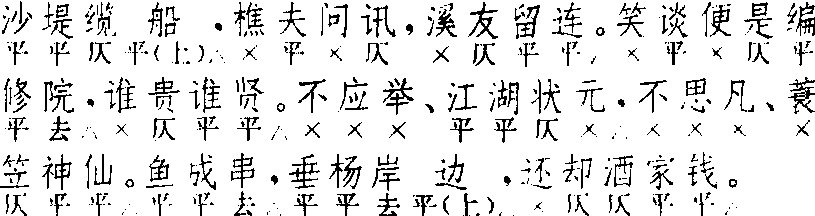 沙堤缆船，樵夫问讯，溪友留连。笑谈便是编
平平仄平(上)△×平×仄，×仄平平△×平×仄平
修院，谁贵谁贤。不应举、江湖状元，不思凡、蓑
平去△×仄平平△×××平平仄×△×××
笠神仙。鱼成串，垂杨岸边，还却酒家钱。
仄平平△平平去△平平去平(上)△×仄仄平平△